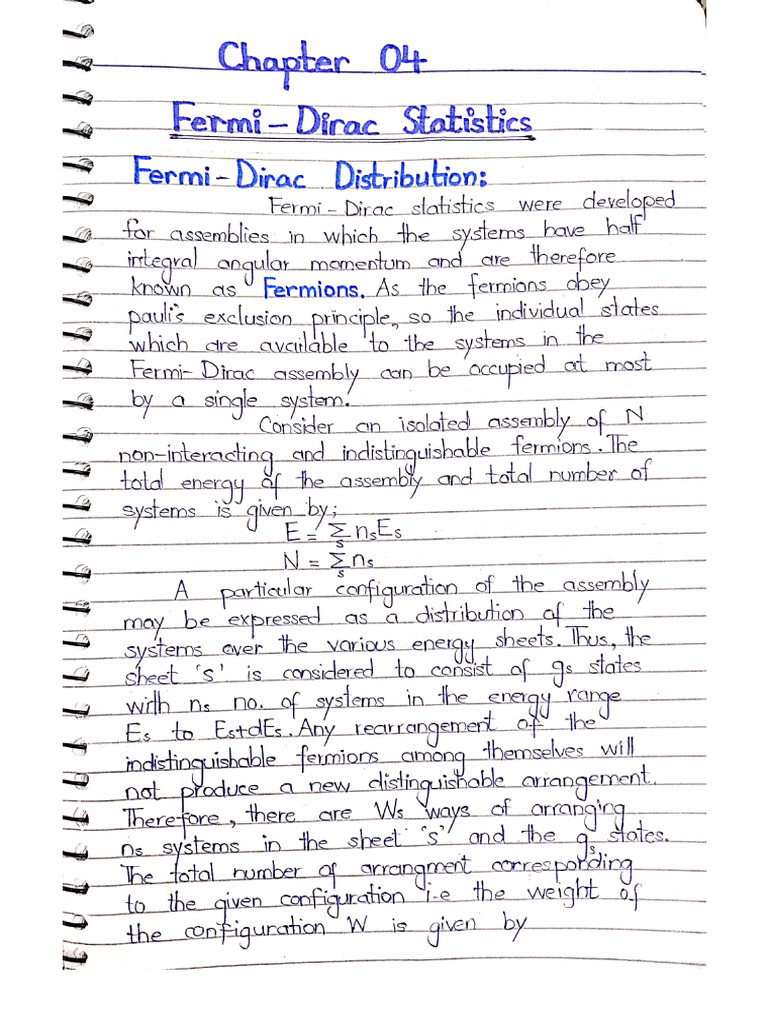 Chapter 04
Fermi-Dirac Statistics
Fermi-Dirac Distribution:
Fermi-Dirac statistics were developed
for assemblies in which the systems have half
integral angular momentum and are therefore
known as Fermions. As the fermions obey
pauli's exclusion principle, so the individual states
which are available to the systems in the
Fermi-Dirac assembly can be occupied at most
by a single system.
Consider an isolated assembly of N
non-interacting and indistinguishable fermions. The
total energy of the assembly and total number of
systems is given by;
E = Σₛ nₛEₛ
N = Σₛ nₛ
A particular configuration of the assembly
may be expressed as a distribution of the
systems over the various energy sheets. Thus, the
sheet 's' is considered to consist of gₛ states
with nₛ no. of systems in the energy range
Eₛ to Eₛ+dEₛ. Any rearrangement of the
indistinguishable fermions among themselves will
not produce a new distinguishable arrangement.
Therefore, there are Wₛ ways of arranging
nₛ systems in the sheet 's' and the gₛ states.
The total number of arrangment corresponding
to the given configuration i.e the weight of
the configuration W is given by